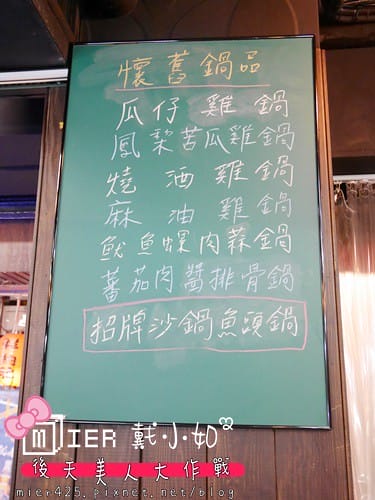 懷舊鍋品
瓜仔雞鍋
鳳梨苦瓜雞鍋
燒酒雞鍋
麻油雞鍋
魷魚螺肉蒜鍋
蕃茄肉醬排骨鍋
招牌沙鍋魚頭鍋
MIER 戴·小·如
後天美人大作戰
mier425.pixnet.net/blog